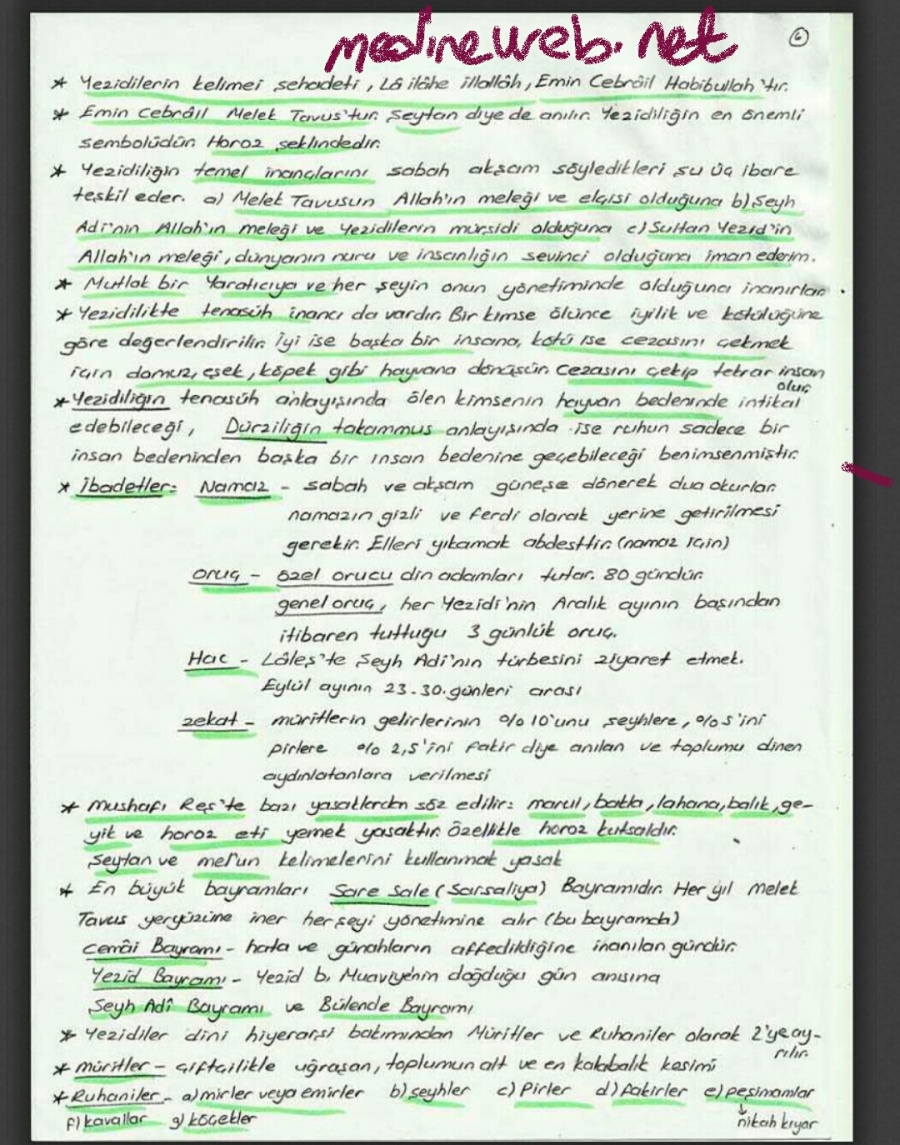 medineweb.net
6
* Yezidilerin kelimei şehadeti, Lâ ilâhe illallâh, Emin Cebrâil Habibullah'tır.
* Emin Cebrâil Melek Tavus'tur. Şeytan diye de anılır. Yezidiliğin en önemli
sembolüdür. Horoz şeklindedir.
* Yezidiliğin temel inançlarını sabah akşam söyledikleri şu üç ibare
teşkil eder. a) Melek Tavusun Allah'ın meleği ve elçisi olduğuna b) Şeyh
Adi'nin Allah'ın meleği ve Yezidilerin mürşidi olduğuna c) Sultan Yezid'in
Allah'ın meleği, dünyanın nuru ve insanlığın sevinci olduğuna iman ederim.
* Mutlak bir Yaratıcıya ve her şeyin onun yönetiminde olduğuna inanırlar.
* Yezidilikte tenasüh inancı da vardır. Bir kimse ölünce iyilik ve kötülüğüne
göre değerlendirilir. İyi ise başka bir insana, kötü ise cezasını çekmek
için domuz, eşek, köpek gibi hayvana dönüşür. Cezasını çekip tekrar insan
olur
* Yezidiliğin tenasüh anlayışında ölen kimsenin hayvan bedeninde intikal
edebileceği, Dürziliğin takammus anlayışında ise ruhun sadece bir
insan bedeninden başka bir insan bedenine geçebileceği benimsenmiştir.
* İbadetler: Namaz - sabah ve akşam güneşe dönerek dua okurlar.
namazın gizli ve ferdi olarak yerine getirilmesi
gerekir. Elleri yıkamak abdesttir. (namaz için)
oruç - özel orucu din adamları tutar. 80 gündür.
genel oruç, her Yezidi'nin Aralık ayının başından
itibaren tuttuğu 3 günlük oruç.
Hac - Lâleş'te Şeyh Adi'nin türbesini ziyaret etmek.
Eylül ayının 23-30. günleri arası
zekat - müritlerin gelirlerinin %10'unu şeyhlere, %5'ini
pirlere %2,5'ini fakir diye anılan ve toplumu dinen
aydınlatanlara verilmesi
* Mushafı Reş'te bazı yasaklardan söz edilir: marul, bakla, lahana, balık, ge-
yik ve horoz eti yemek yasaktır. Özellikle horoz kutsaldır.
Şeytan ve mel'un kelimelerini kullanmak yasak
* En büyük bayramları Sare Sale (Sarsaliya) Bayramıdır. Her yıl Melek
Tavus yeryüzüne iner her şeyi yönetimine alır (bu bayramda)
Cemâi Bayramı - hata ve günahların affedildiğine inanılan gündür.
Yezid Bayramı - Yezid b. Muaviye'nin doğduğu gün anısına
Şeyh Adî Bayramı ve Bülende Bayramı
* Yezidiler dini hiyerarşi bakımından Müritler ve Ruhaniler olarak 2'ye ay-
rılır.
* müritler - çiftçilikle uğraşan, toplumun alt ve en kalabalık kesimi
* Ruhaniler - a) mirler veya emirler b) şeyhler c) Pirler d) fakirler e) peşimamlar
nikah kıyar
f) kavallar g) köçekler